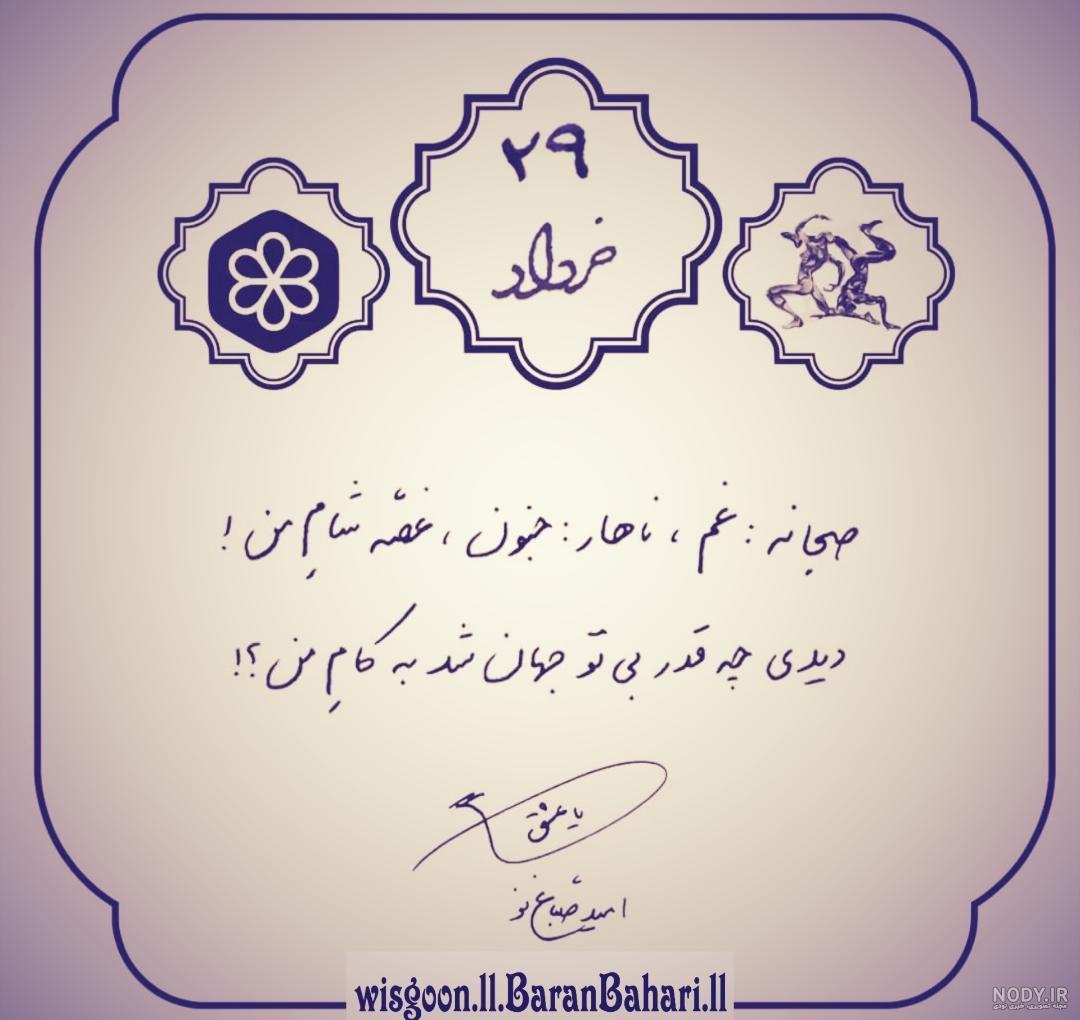 ۲۹
خرداد
صبحانه: غم، ناهار: جنون، غصّه شامِ من!
دیدی چه قدر بی تو جهان شد به کامِ من؟!
یا عشق
امید صباغ نو
wisgoon.ll.BaranBahari.ll
NODY.IR
مجله تصویری، خبری نودی